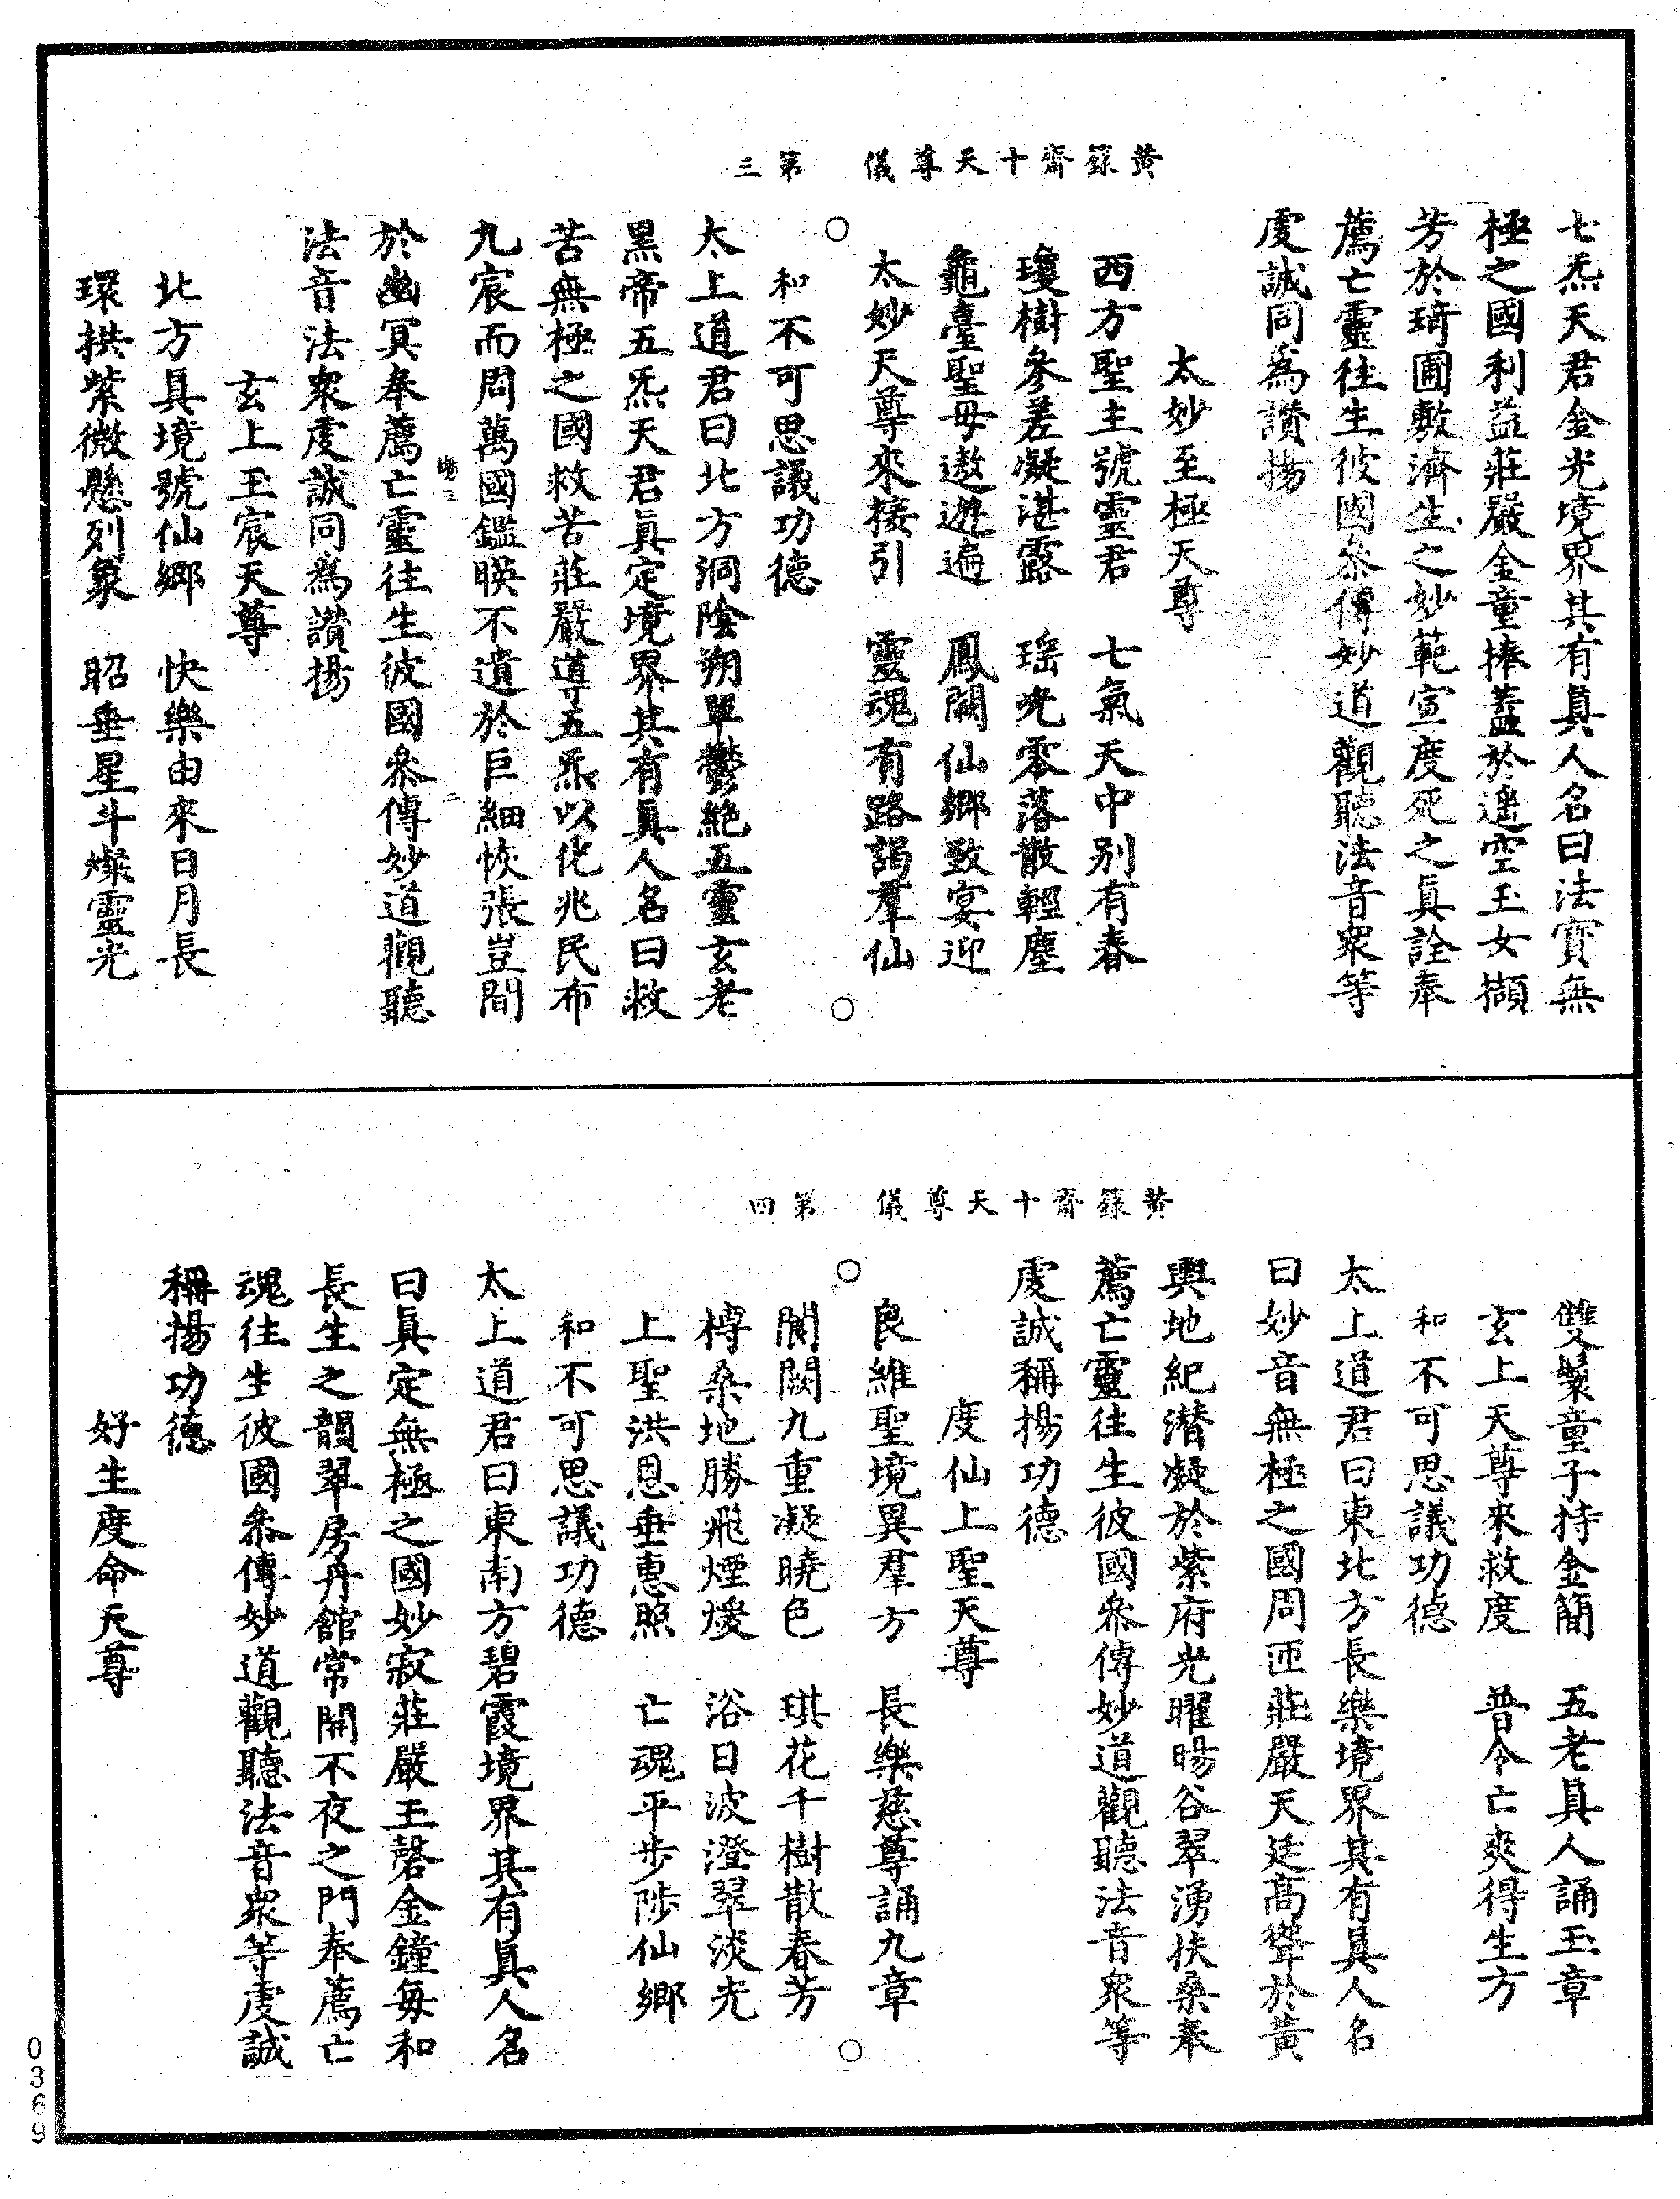 黃籙齋十天尊儀　第三
七炁天君金光境界其有真人名曰法寶無
極之國利益莊嚴金童捧蓋於遙空玉女擷
芳於琦圃敷濟生之妙範宣度死之真詮奉
薦亡靈往生彼國叅傳妙道觀聽法音衆等
虔誠同爲讚揚
太妙至極天尊
西方聖主號靈君　七氣天中别有春
瓊樹參差凝湛露　瑶光零落散輕塵
龜臺聖母遨遊遍　鳳闕仙鄉致宴迎
太妙天尊來接引　靈魂有路謁羣仙
和不可思議功德
太上道君曰北方洞陰朔單鬱絶五靈玄老
黑帝五炁天君真定境界其有真人名曰救
苦無極之國救苦莊嚴導五炁以化兆民布
九宸而周萬國鑑暎不遺於巨細恢張豈間
於幽冥奉薦亡靈往生彼國叅傳妙道觀聽
法音法衆虔誠同爲讚揚
玄上玉宸天尊
北方具境號仙鄉　快樂由來日月長
環拱紫微懸列象　昭垂星斗燦靈光
黃籙齋十天尊儀　第四
雙鬟童子持金簡　五老真人誦玉章
玄上天尊來救度　普令亡爽得生方
和不可思議功德
太上道君曰東北方長樂境界其有真人名
曰妙音無極之國周匝莊嚴天廷高聳於黃
輿地紀潛凝於紫府光曜暘谷翠湧扶桑奉
薦亡靈往生彼國叅傳妙道觀聽法音衆等
虔誠稱揚功德
度仙上聖天尊
良維聖境異羣方　長樂慈尊誦九章
閬闕九重凝曉色　琪花千樹散春芳
榑桑地勝飛煙煖　浴日波澄翠淡光
上聖洪恩垂惠照　亡魂平步陟仙鄉
和不可思議功德
太上道君曰東南方碧霞境界其有真人名
曰真定無極之國妙寂莊嚴玉磬金鐘每和
長生之韻翠房丹館常開不夜之門奉薦亡
魂往生彼國叅傳妙道觀聽法音衆等虔誠
稱揚功德
好生度命天尊
0369